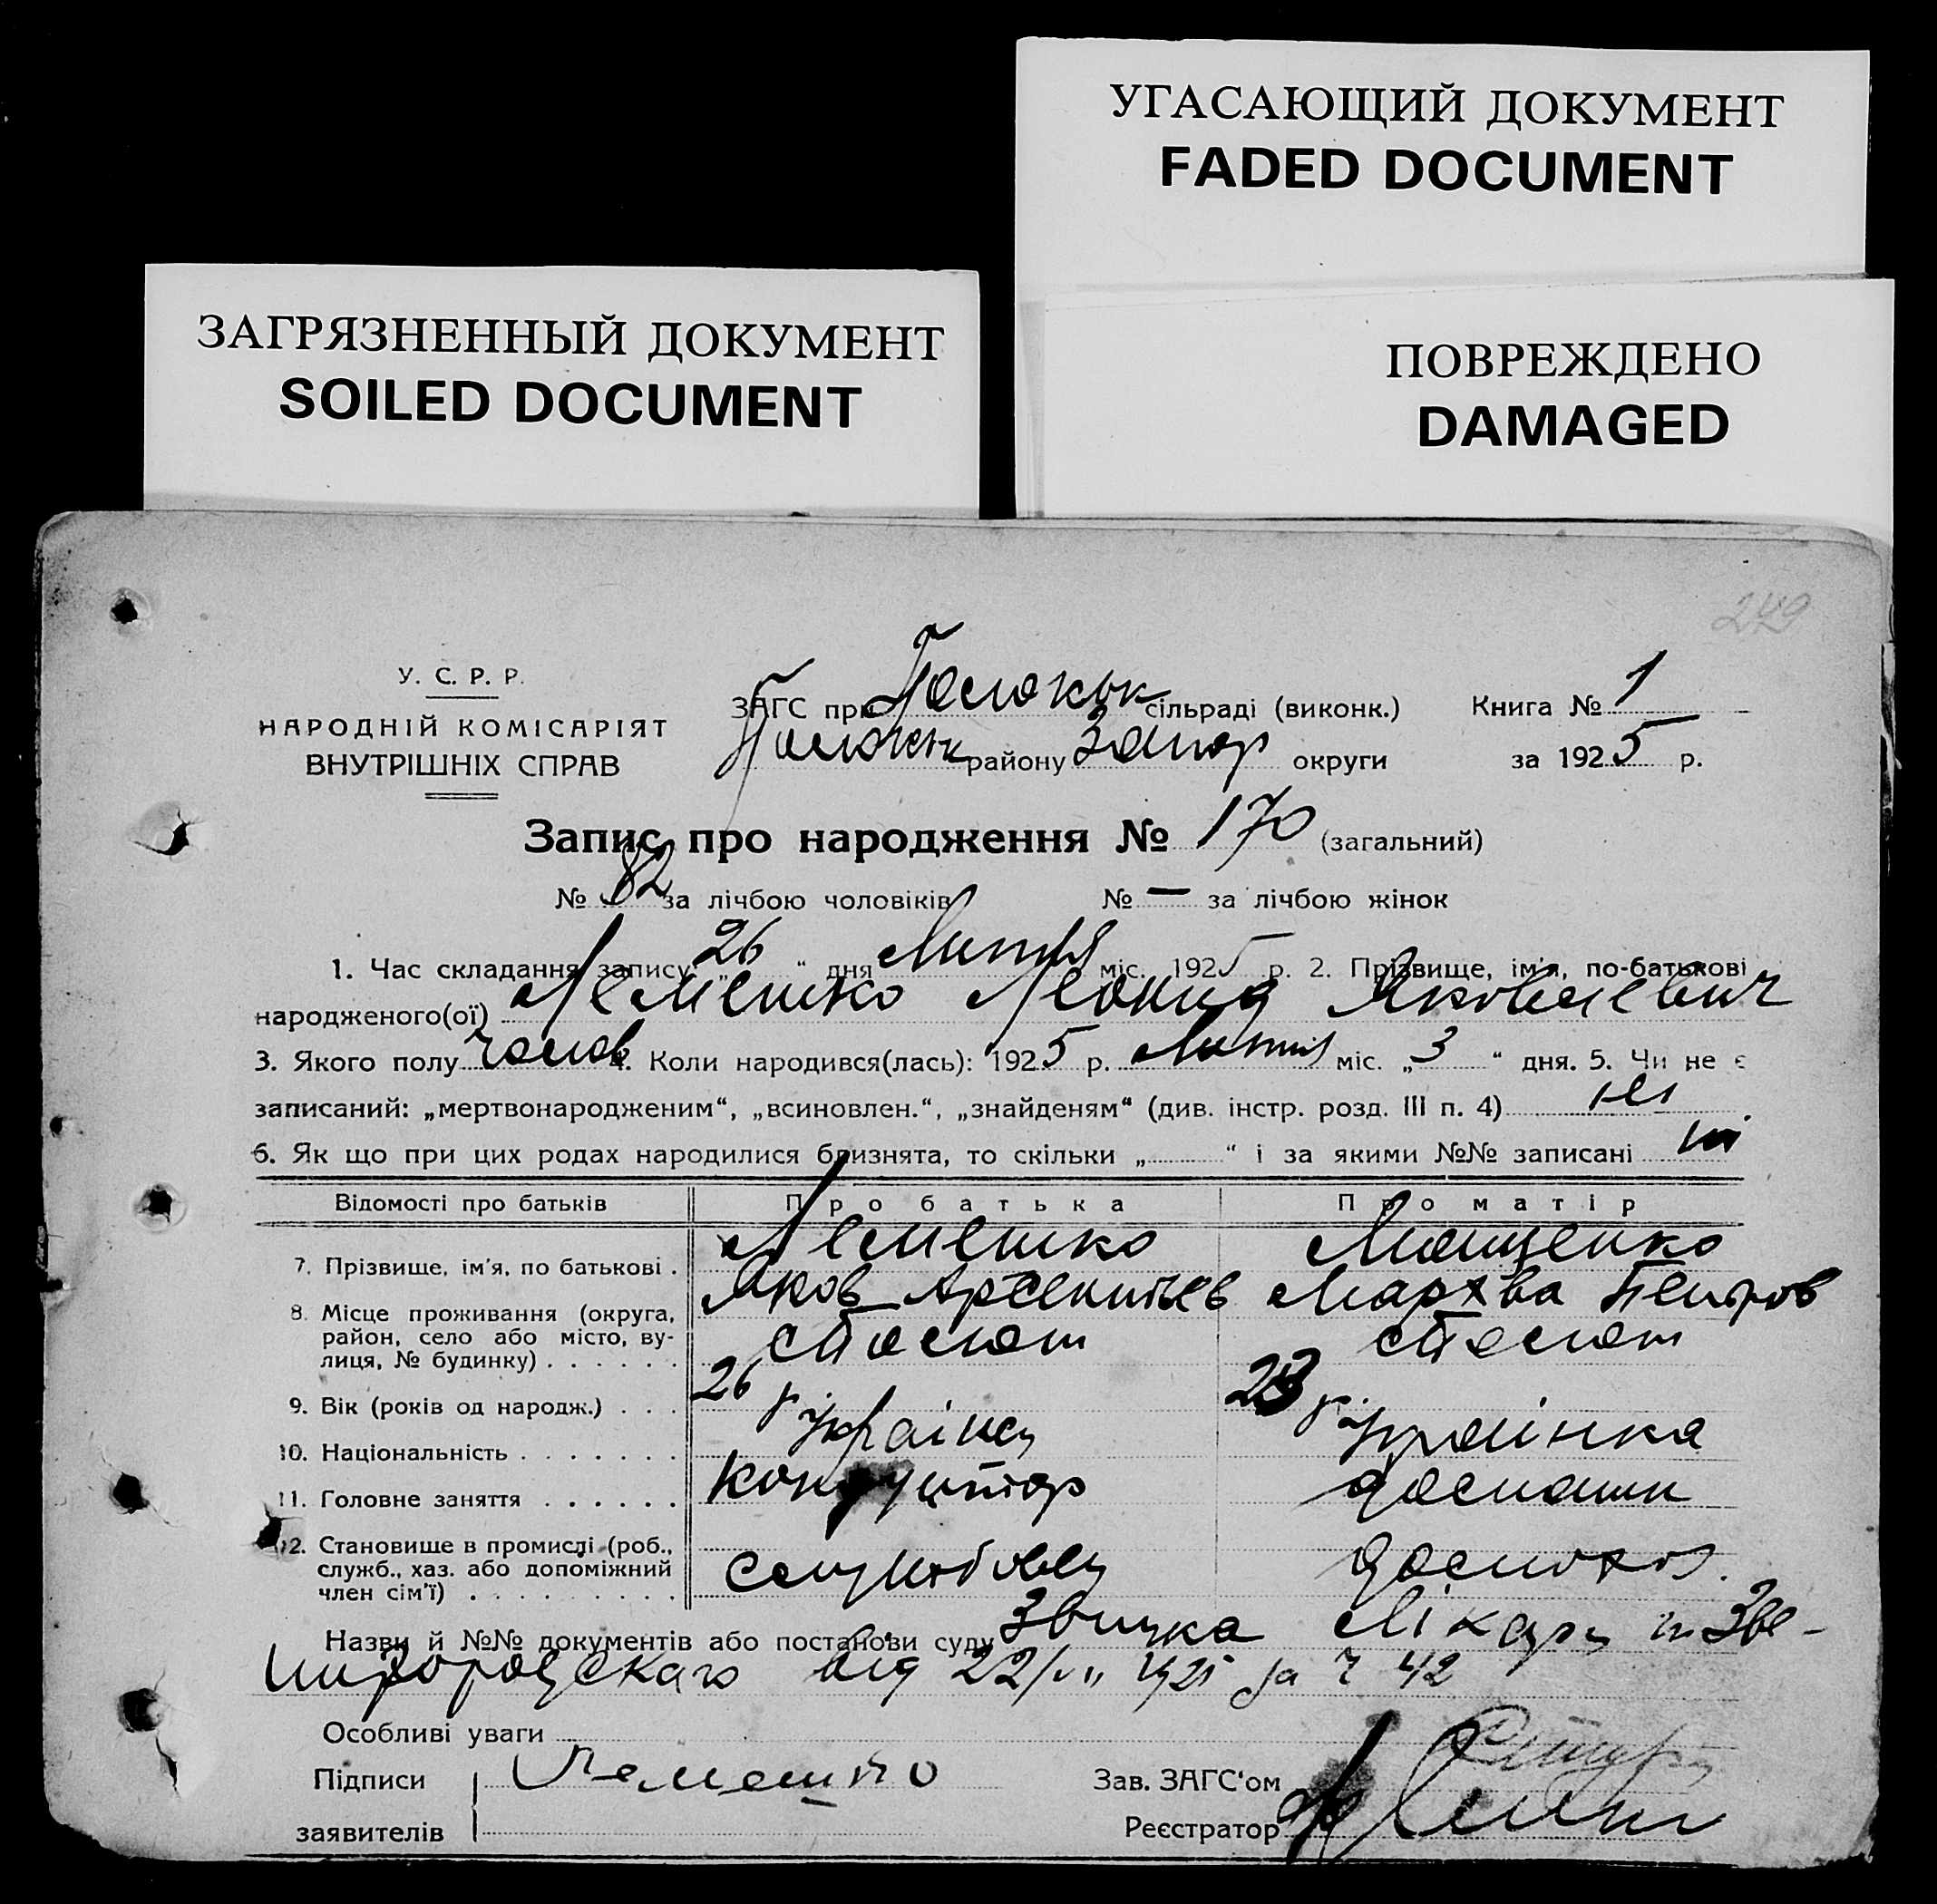 УГАСАЮЩИЙ ДОКУМЕНТ
FADED DOCUMENT
ЗАГРЯЗНЕННЫЙ ДОКУМЕНТ
SOILED DOCUMENT
ПОВРЕЖДЕНО
DAMAGED
У. С. Р. Р.
НАРОДНІЙ КОМІСАРІЯТ
ВНУТРІШНІХ СПРАВ
ЗАГС при Пологськ сільраді (виконк.)
району Запор округи
Книга № 1
за 1925 р.
Запис про народження № 170 (загальний)
№ 82 за лічбою чоловіків № — за лічбою жінок
1. Час складання запису „26“ дня Лютія міс. 1925 р. 2. Прізвище, ім'я, по-батькові
народженого(ої) Лемешко Леонид Яковлевич
3. Якого полу чолов 4. Коли народився(лась): 1925 р. Лютія міс. „3“ дня. 5. Чи не є
записаний: „мертвонародженим“, „всиновлен.“, „знайденям“ (див. інстр. розд. III п. 4) ні
6. Як що при цих родах народилися близнята, то скільки „ “ і за якими №№ записані ні
Відомості про батьків Про батька Про матір
7. Прізвище, ім'я, по батькові . Лемешко Яков Арсентьев Мащенко Мархва Петров
8. Місце проживання (округа,
район, село або місто, ву-
лиця, № будинку) . . . . . .
9. Вік (років од народж.) . . . 26 р. 23 р.
10. Національність . . . . . . . українец українка
11. Головне заняття . . . . . . кондуктор домашн
12. Становище в промислі (роб.,
служб., хаз. або допоміжний
член сім'ї) . . . . . . . . . службовец
Назви й №№ документів або постанови суду Звістка Лікаря Зве-
нигородскаго від 22/ 1925 за ч 42
Особливі уваги
Підписи Лемешко Зав. ЗАГС'ом
заявителів Реєстратор